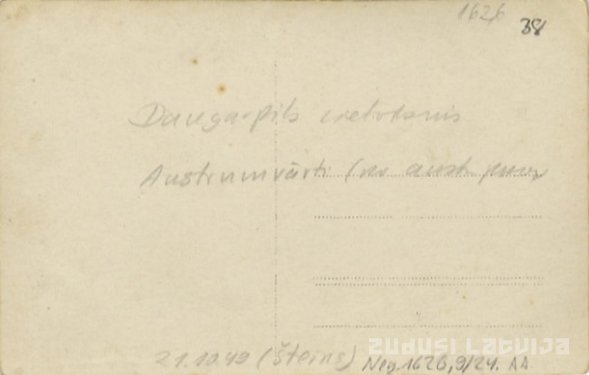 1626
38
Daugavpils cietoksnis
Austrumvārti (no austr. puses
21.10.49 (Šteins) Neg.1626,9/24. AA
ZUDUSI LATVIJA